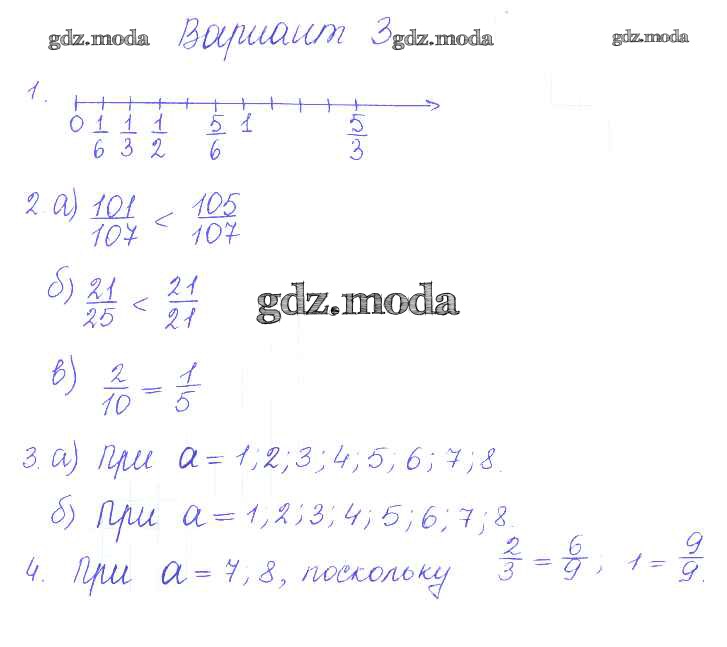 gdz.moda Вариант 3 gdz.moda gdz.moda
1.
0 1/6 1/3 1/2 5/6 1 5/3
2. а) 101/107 < 105/107
б) 21/25 < 21/21
gdz.moda
в) 2/10 = 1/5
3. а) При a = 1; 2; 3; 4; 5; 6; 7; 8.
б) При a = 1; 2; 3; 4; 5; 6; 7; 8.
4. При a = 7; 8, поскольку 2/3 = 6/9; 1 = 9/9.